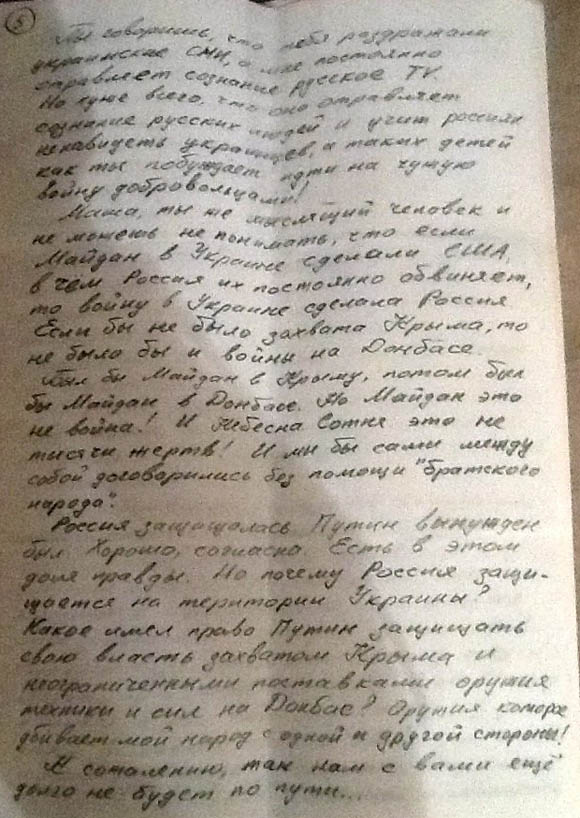 5
Ты говоришь, что тебя раздражали
украинские СМИ, а мне постоянно
отравляет сознание русское TV.
Но хуже всего, что оно отравляет
сознание русских людей и учит россиян
ненавидеть украинцев, а таких детей
как ты побуждает идти на чужую
войну добровольцами!
Маша, ты же мыслящий человек и
не можешь не понимать, что если
Майдан в Украине сделали США,
в чем Россия их постоянно обвиняет,
то войну в Украине сделала Россия
Если бы не было захвата Крыма, то
не было бы и войны на Донбасе.
Был бы Майдан в Крыму, потом был
бы Майдан в Донбасе. Но Майдан это
не война! И Небесна Сотня это не
тисячи жертв! И мы бы сами между
собой договорились без помощи "братского
народа".
Россия защищалась. Путин вынужден
был. Хорошо, согласна. Есть в этом
доля правды. Но почему Россия защи-
щается на територии Украины?
Какое имел право Путин защищать
свою власть захватом Крыма и
неограниченными поставками оружия
техники и сил на Донбас? Оружия которое
убивает мой народ с одной и другой стороны!
К сожалению, так нам с вами ещё
долго не будет по пути...